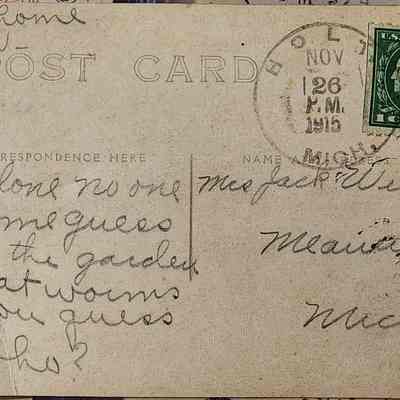 home
POST CARD
HOLT
NOV
26
P.M.
1915
MICH.
U.S.
RESPONDENCE HERE
NAME A
lone no one
me guess
the garden
at worms
ou guess
ho?
Mrs Jack We
Mic